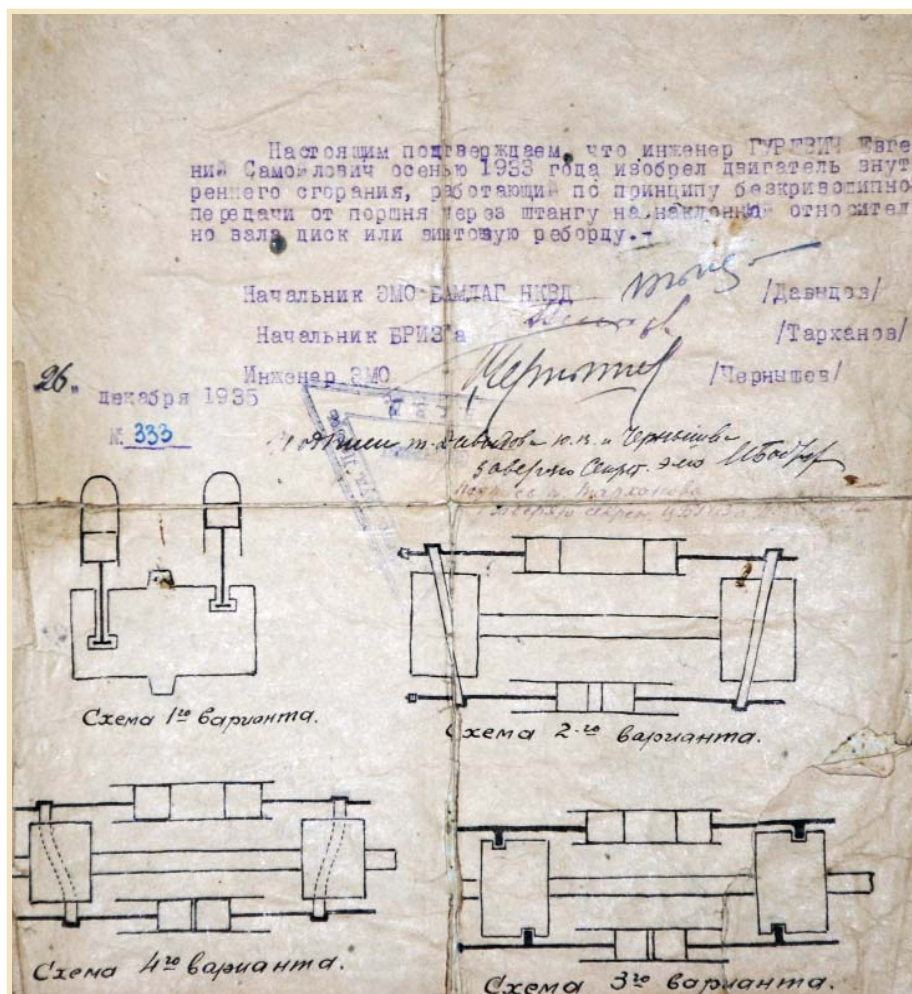 Настоящим подтверждаем, что инженер ГУРЕВИЧ Евге
ний Самойлович осенью 1933 года изобрел двигатель внут
реннего сгорания, работающий по принципу безкривошипно
передачи от поршня через штангу на наклонный относител
но вала диск или винтовую реборду.-
Начальник ЭМО БАМЛАГ НКВД /Давыдов/
Начальник БРИЗ'а /Тарханов/
Инженер ЭМО Чернышев /Чернышев/
"26" декабря 1935
№ 333
т. Давыдова Ю.В. и Чернышева
заверяю Секрет. ЭМО
Подпись т. Тарханова
заверяю секрет.
Схема 1го варианта.
Схема 2-го варианта.
Схема 4го варианта.
Схема 3го варианта.